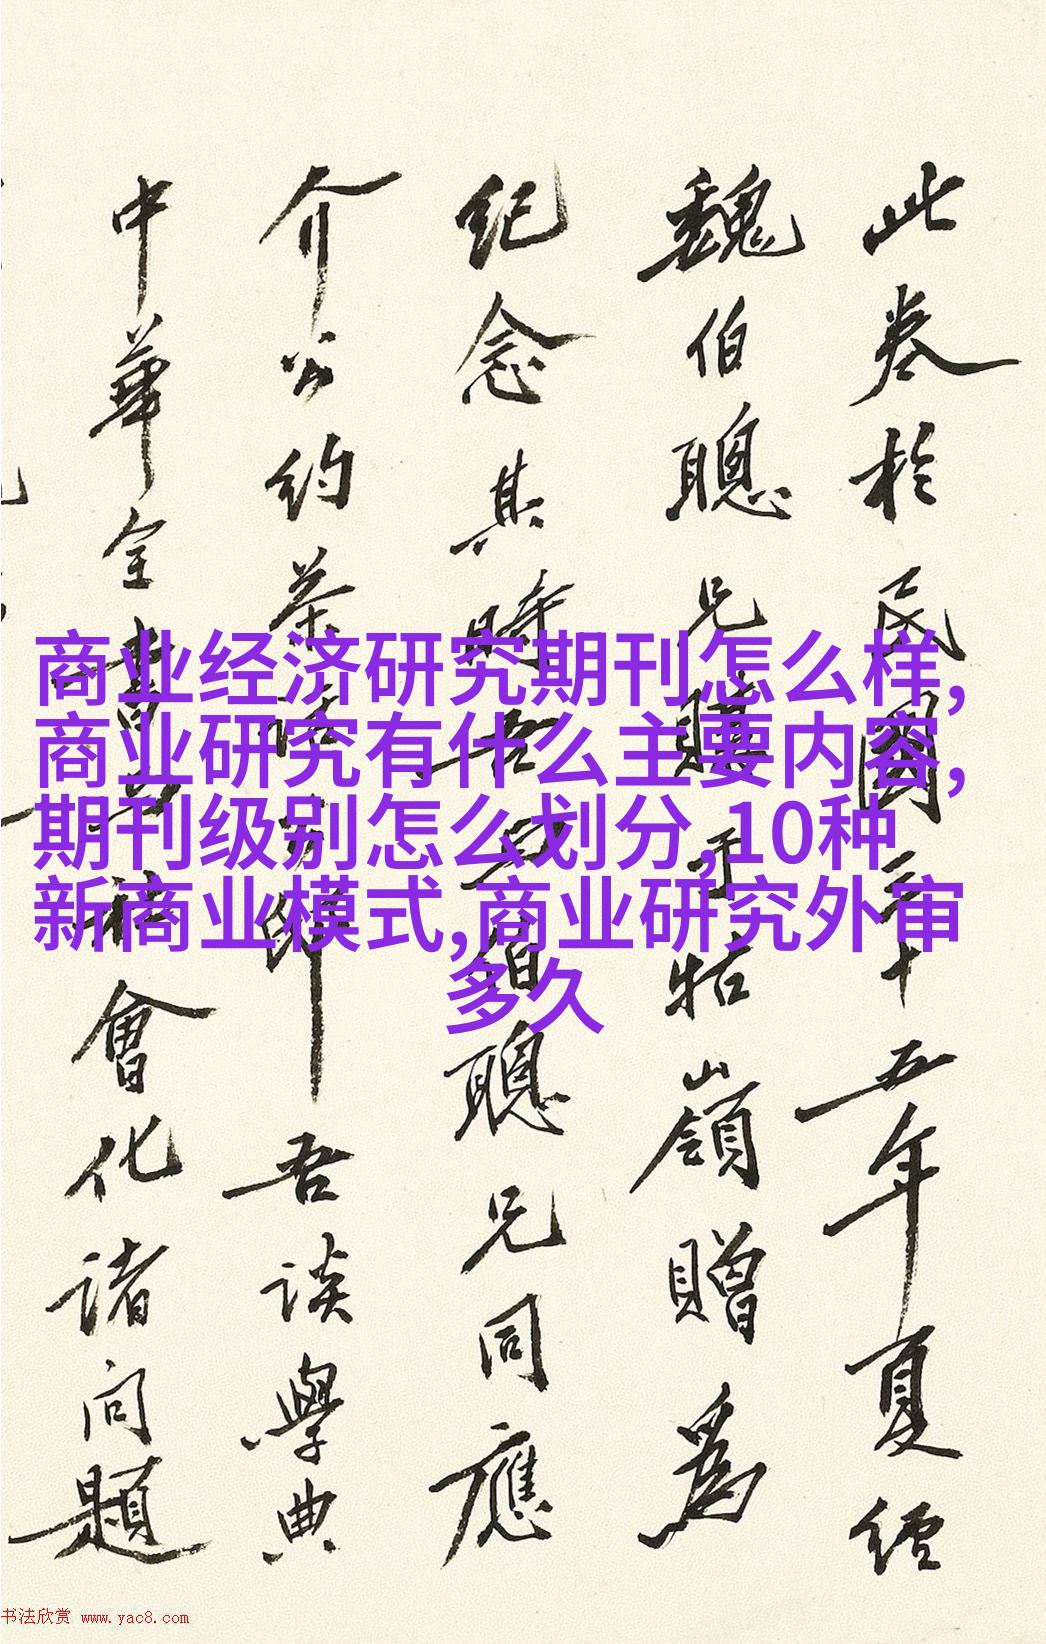 此卷於民國三十五年夏經
魏伯聰兄購于牯嶺贈為
紀念其時吾與伯聰兄同應
介公約茶話方歸吾談學典
中華全書與社會化諸問題
商业经济研究期刊怎么样,
商业研究有什么主要内容,
期刊级别怎么划分,10种
新商业模式,商业研究外审
多久
书法欣赏 www.yac8.com